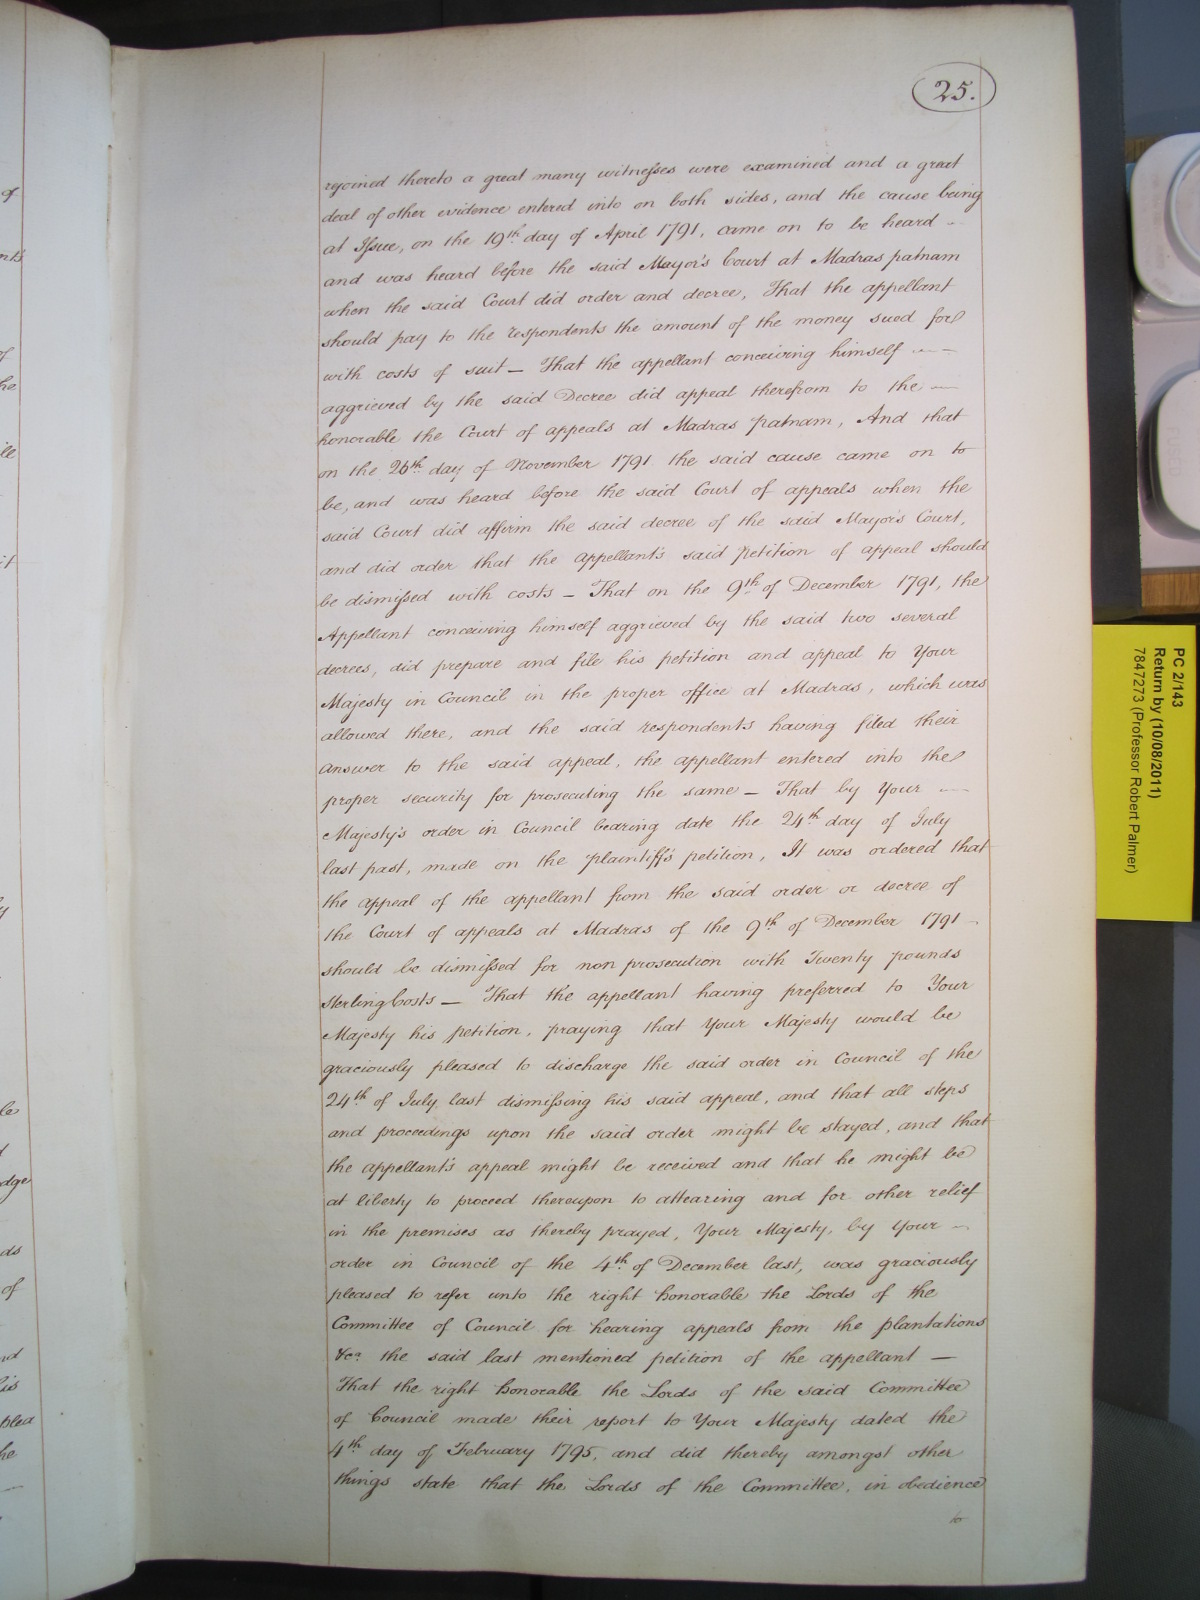 25.
rejoined thereto a great many witnesses were examined and a great
deal of other evidence entered into on both sides, and the cause being
at Issue, on the 19th day of April 1791, came on to be heard
and was heard before the said Mayor's Court at Madras patnam
when the said Court did order and decree, That the appellant
should pay to the respondents the amount of the money sued for
with costs of suit — That the appellant conceiving himself
aggrieved by the said Decree did appeal therefrom to the
honorable the Court of appeals at Madras patnam, And that
on the 26th day of November 1791 the said cause came on to
be, and was heard before the said Court of appeals when the
said Court did affirm the said decree of the said Mayor's Court,
and did order that the appellant's said petition of appeal should
be dismissed with costs — That on the 9th of December 1791, the
Appellant conceiving himself aggrieved by the said two several
decrees, did prepare and file his petition and appeal to Your
Majesty in Council in the proper office at Madras, which was
allowed there, and the said respondents having filed their
answer to the said appeal, the appellant entered into the
proper security for prosecuting the same — That by Your
Majesty's order in Council bearing date the 24th day of July
last past, made on the plaintiff's petition, It was ordered that
the appeal of the appellant from the said order or decree of
the Court of appeals at Madras of the 9th of December 1791
should be dismissed for non prosecution with Twenty pounds
sterling Costs — That the appellant having preferred to Your
Majesty his petition, praying that Your Majesty would be
graciously pleased to discharge the said order in Council of the
24th of July last dismissing his said appeal, and that all steps
and proceedings upon the said order might be stayed, and that
the appellant's appeal might be received and that he might be
at liberty to proceed thereupon to a Hearing and for other relief
in the premises as thereby prayed, Your Majesty, by Your
order in Council of the 4th of December last, was graciously
pleased to refer unto the right honorable the Lords of the
Committee of Council for hearing appeals from the plantations
&ca the said last mentioned petition of the appellant —
That the right honorable the Lords of the said Committee
of Council made their report to Your Majesty dated the
4th day of February 1795, and did thereby amongst other
things state that the Lords of the Committee, in obedience
to
PC 2/143
Return by (10/08/2011)
7847273 (Professor Robert Palmer)